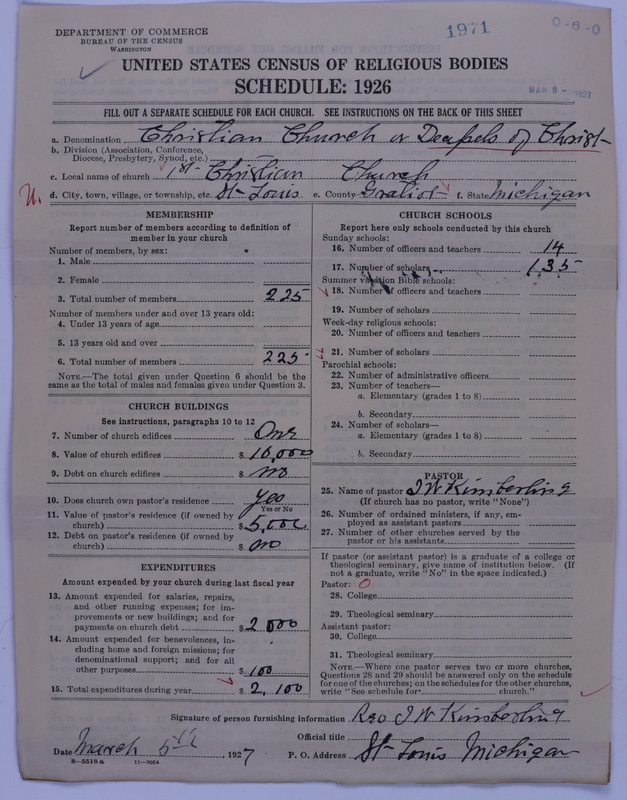 1971
0-6-0
DEPARTMENT OF COMMERCE
BUREAU OF THE CENSUS
WASHINGTON
UNITED STATES CENSUS OF RELIGIOUS BODIES
SCHEDULE: 1926
MAR 8 - 1927
FILL OUT A SEPARATE SCHEDULE FOR EACH CHURCH. SEE INSTRUCTIONS ON THE BACK OF THIS SHEET
a. Denomination Christian Church or Deapels of Christ
b. Division (Association, Conference,
Diocese, Presbytery, Synod, etc.)
c. Local name of church 1st Christian Church
d. City, town, village, or township, etc. St Louis e. County Gratiot f. State Michigan
MEMBERSHIP
Report number of members according to definition of
member in your church
Number of members, by sex:
1. Male
2. Female
3. Total number of members 225
Number of members under and over 13 years old:
4. Under 13 years of age
5. 13 years old and over
6. Total number of members 225
NOTE.—The total given under Question 6 should be the
same as the total of males and females given under Question 3.
CHURCH BUILDINGS
See instructions, paragraphs 10 to 12
7. Number of church edifices One
8. Value of church edifices $ 10,000
9. Debt on church edifices $ no
10. Does church own pastor's residence yes
Yes or No
11. Value of pastor's residence (if owned by
church) $ 5,000
12. Debt on pastor's residence (if owned by
church) $ no
EXPENDITURES
Amount expended by your church during last fiscal year
13. Amount expended for salaries, repairs,
and other running expenses; for im-
provements or new buildings; and for
payments on church debt $ 2 000
14. Amount expended for benevolences, in-
cluding home and foreign missions; for
denominational support; and for all
other purposes $ 100
15. Total expenditures during year $ 2,100
CHURCH SCHOOLS
Report here only schools conducted by this church
Sunday schools:
16. Number of officers and teachers 14
17. Number of scholars 135
Summer vacation Bible schools:
18. Number of officers and teachers
19. Number of scholars
Week-day religious schools:
20. Number of officers and teachers
21. Number of scholars
Parochial schools:
22. Number of administrative officers
23. Number of teachers—
a. Elementary (grades 1 to 8)
b. Secondary
24. Number of scholars—
a. Elementary (grades 1 to 8)
b. Secondary
PASTOR
25. Name of pastor J W Kimberling
(If church has no pastor, write "None")
26. Number of ordained ministers, if any, em-
ployed as assistant pastors
27. Number of other churches served by the
pastor or his assistants
If pastor (or assistant pastor) is a graduate of a college or
theological seminary, give name of institution below. (If
not a graduate, write "No" in the space indicated.)
Pastor: O
28. College
29. Theological seminary
Assistant pastor:
30. College
31. Theological seminary
NOTE.—Where one pastor serves two or more churches,
Questions 28 and 29 should be answered only on the schedule
for one of the churches; on the schedules for the other churches,
write "See schedule for church."
Signature of person furnishing information Rev J W Kimberling
Official title
Date March 5th, 1927 P. O. Address St Louis Michigan
8-5518 a 11-9054